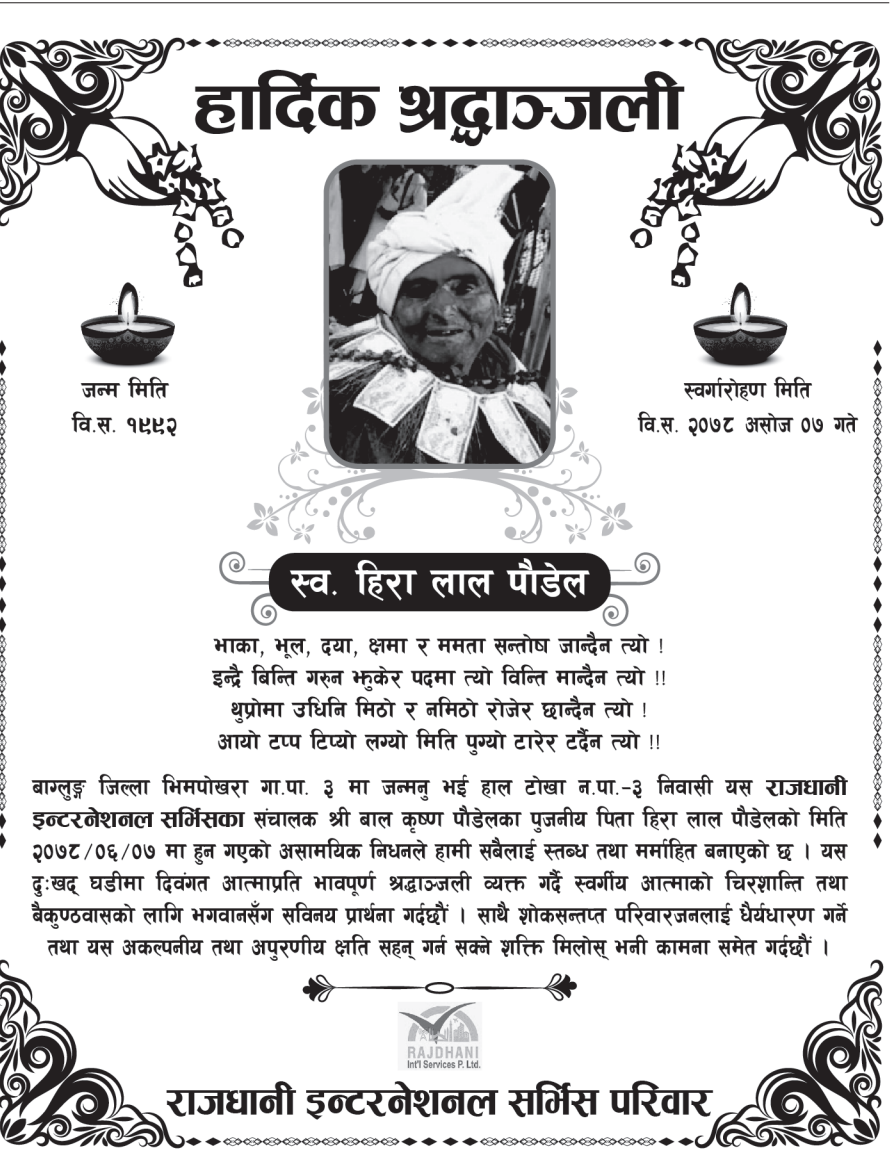 हार्दिक श्रद्धाञ्जली
जन्म मिति
वि.स. १९९२
स्वर्गारोहण मिति
वि.स. २०७८ असोज ०७ गते
स्व. हिरा लाल पौडेल
भाका, भूल, दया, क्षमा र ममता सन्तोष जान्दैन त्यो !
इन्द्रै बिन्ति गरुन झुकेर पदमा त्यो विन्ति मान्दैन त्यो !!
थुप्रोमा उधिनि मिठो र नमिठो रोजेर छान्दैन त्यो !
आयो टप्प टिप्यो लग्यो मिति पुग्यो टारेर टर्दैन त्यो !!
बाग्लुङ्ग जिल्ला भिमपोखरा गा.पा. ३ मा जन्मनु भई हाल टोखा न.पा.-३ निवासी यस राजधानी
इन्टरनेशनल सर्भिसका संचालक श्री बाल कृष्ण पौडेलका पुजनीय पिता हिरा लाल पौडेलको मिति
२०७८/०६/०७ मा हुन गएको असामयिक निधनले हामी सबैलाई स्तब्ध तथा मर्माहित बनाएको छ । यस
दुःखद् घडीमा दिवंगत आत्माप्रति भावपूर्ण श्रद्धाञ्जली व्यक्त गर्दै स्वर्गीय आत्माको चिरशान्ति तथा
बैकुण्ठवासको लागि भगवानसँग सविनय प्रार्थना गर्दछौं । साथै शोकसन्तप्त परिवारजनलाई धैर्यधारण गर्ने
तथा यस अकल्पनीय तथा अपुरणीय क्षति सहन् गर्न सक्ने शक्ति मिलोस् भनी कामना समेत गर्दछौं ।
RAJDHANI
Int'l Services P. Ltd.
राजधानी इन्टरनेशनल सर्भिस परिवार